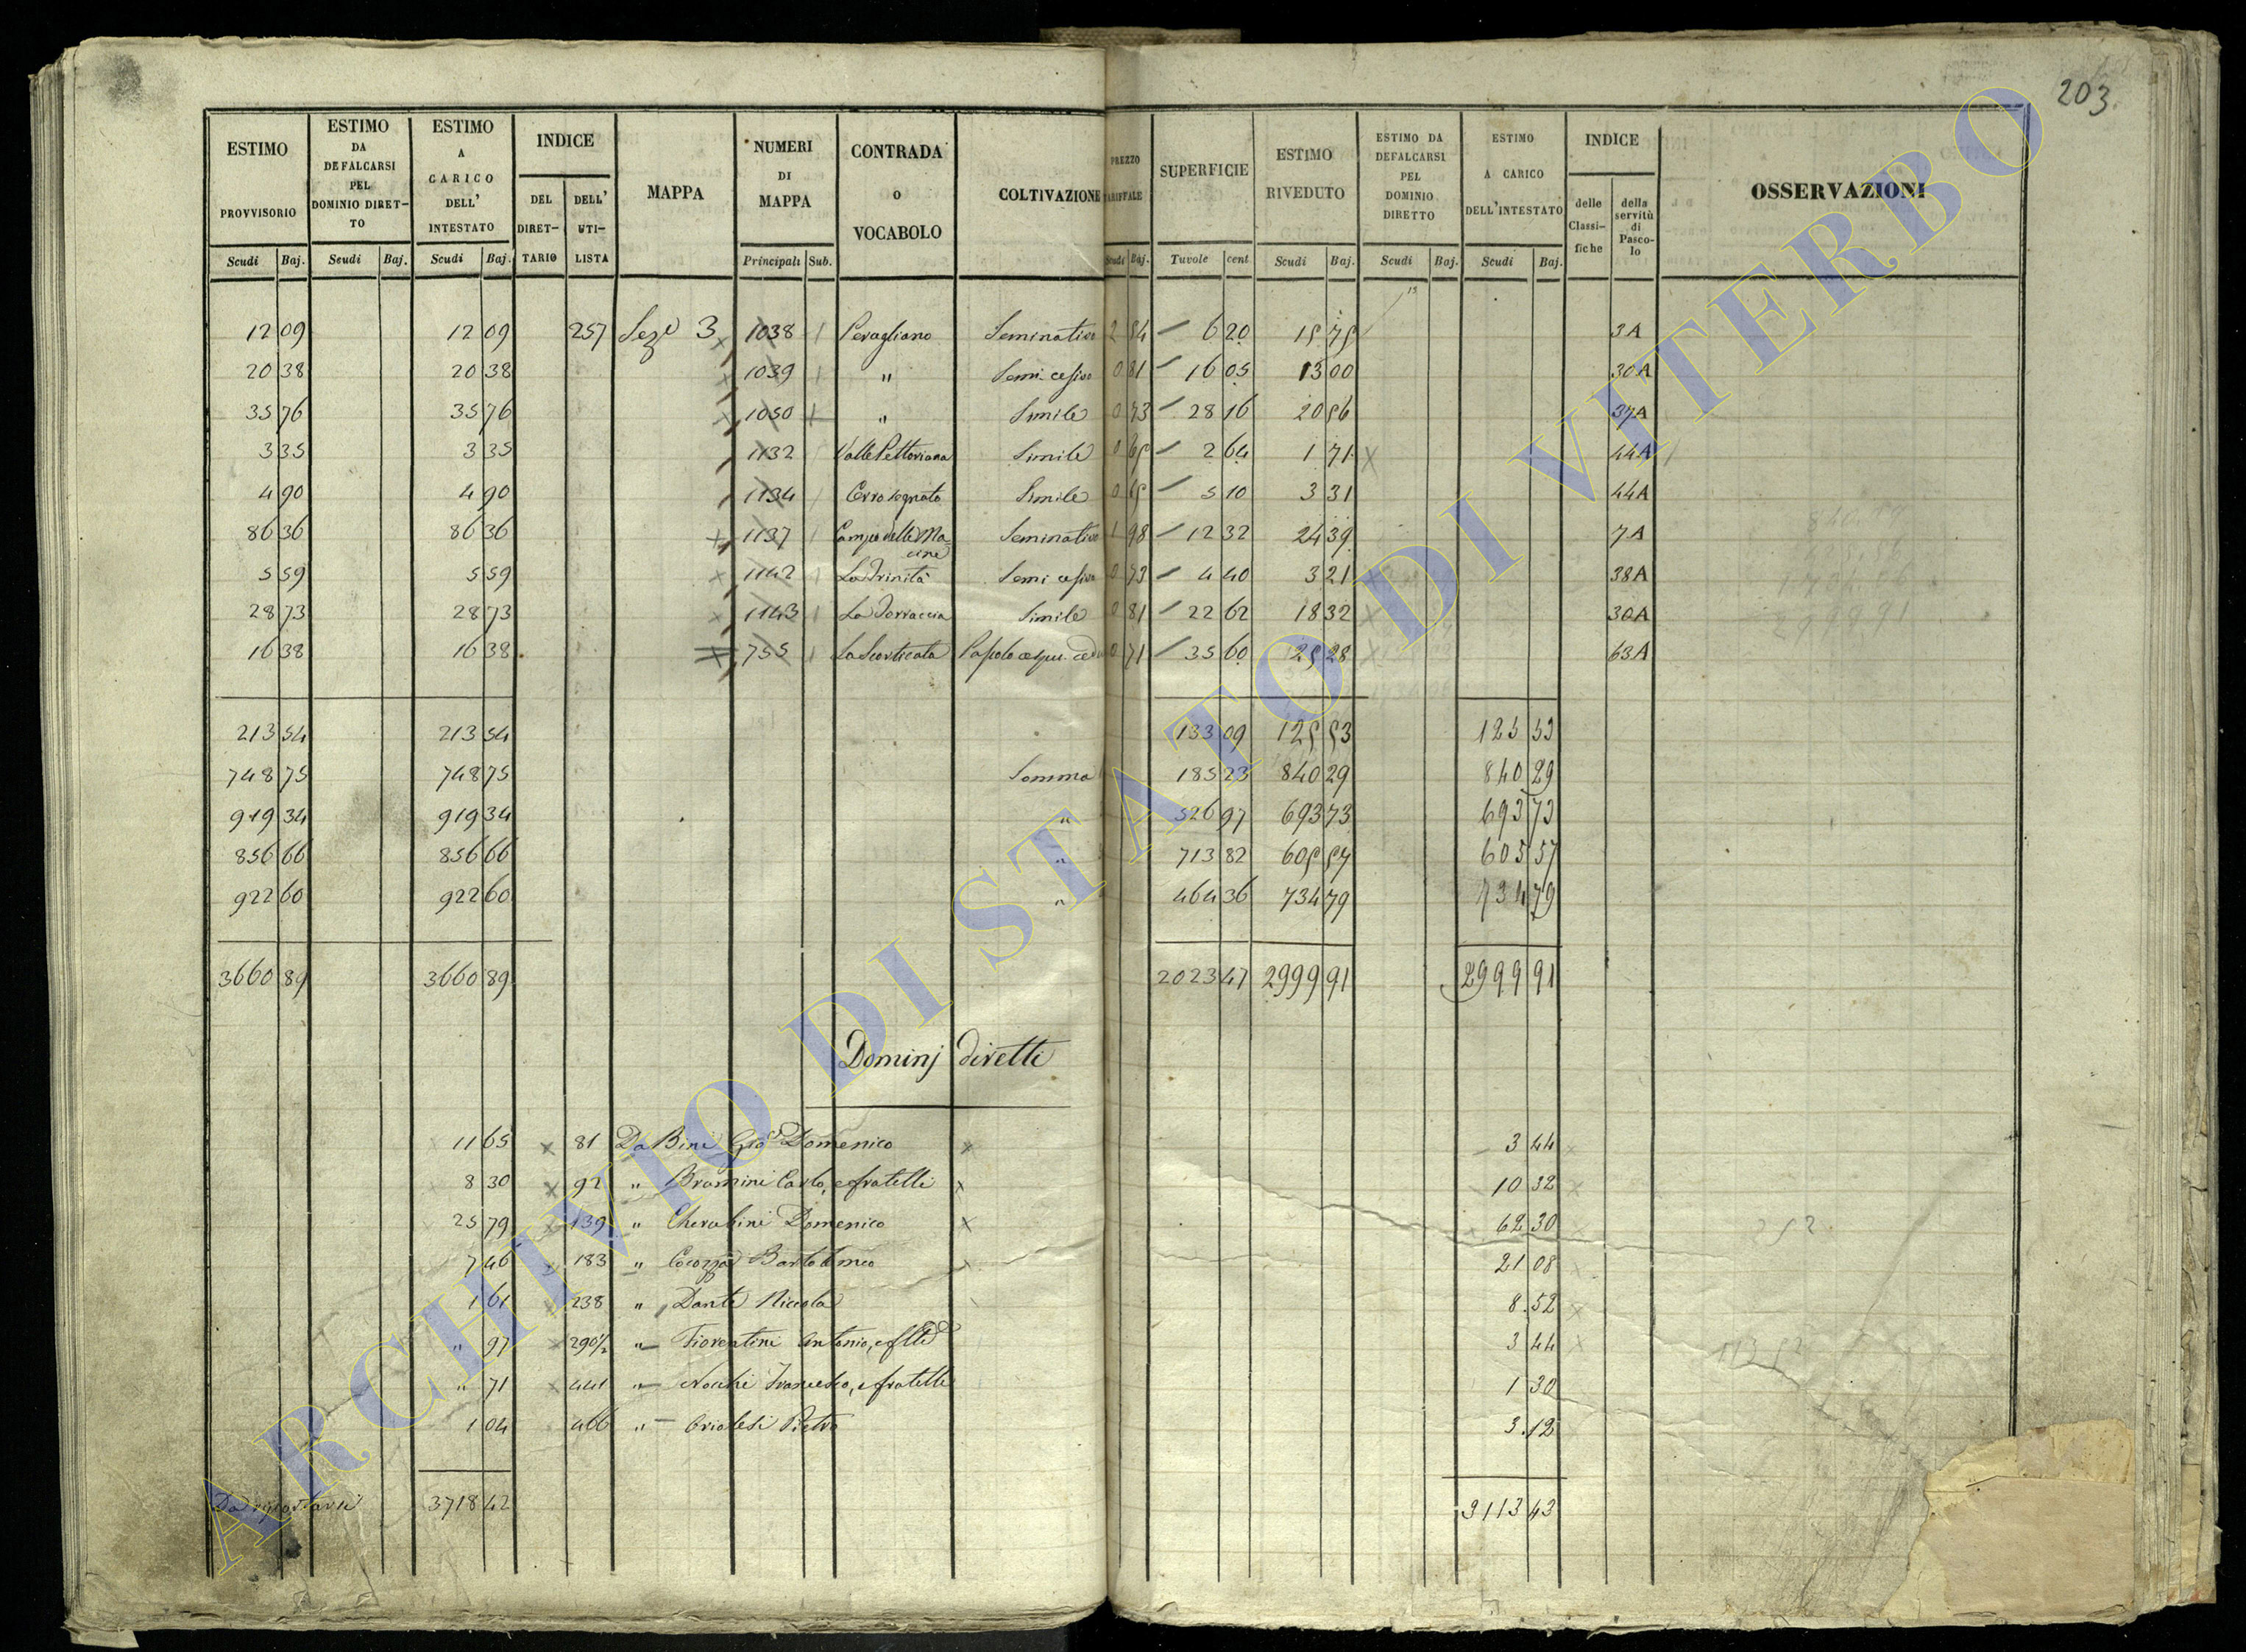 203
ESTIMO PROVVISORIO | ESTIMO DA DEFALCARSI PEL DOMINIO DIRETTO | ESTIMO A CARICO DELL' INTESTATO | INDICE | MAPPA | NUMERI DI MAPPA | CONTRADA O VOCABOLO | COLTIVAZIONE | PREZZO TARIFFALE | SUPERFICIE | ESTIMO RIVEDUTO | ESTIMO DA DEFALCARSI PEL DOMINIO DIRETTO | ESTIMO A CARICO DELL'INTESTATO | INDICE | OSSERVAZIONI
DEL DIRETTARIO | DELL' UTILISTA | delle Classifiche | della servitù di Pascolo
Scudi | Baj. | Scudi | Baj. | Scudi | Baj. | Principali | Sub. | Scudi | Baj. | Tavole | cent | Scudi | Baj. | Scudi | Baj. | Scudi | Baj.
12 09 | 12 09 | 257 | Sez. 3 | 1038 | Peragliano | Seminativo | 2 54 | 6 20 | 15 75 | 3A
20 38 | 20 38 | 1039 | " | Semi. cesivo | 0 81 | 16 05 | 13 00 | 30A
35 76 | 35 76 | 1050 | " | Simile | 0 73 | 28 16 | 20 56 | 37A
3 35 | 3 35 | 1132 | Valle Pettoriana | Simile | 0 65 | 2 64 | 1 71 | 44A
4 90 | 4 90 | 1134 | Cerro segnato | Simile | 0 65 | 5 10 | 3 31 | 44A
86 36 | 86 36 | 1137 | Campo delle Macine | Seminativo | 1 98 | 12 32 | 24 39 | 7A
5 59 | 5 59 | 1142 | La Trinità | Semi cesivo | 0 73 | 4 40 | 3 21 | 38A
28 73 | 28 73 | 1143 | La Torraccia | Simile | 0 81 | 22 62 | 18 32 | 30A
16 38 | 16 38 | 755 | La Scorticata | 0 71 | 35 60 | 25 28 | 63A
213 54 | 213 54 | 133 09 | 125 53 | 125 53
748 75 | 748 75 | Somma | 185 23 | 840 29 | 840 29
919 34 | 919 34 | " | 526 97 | 693 73 | 693 73
856 66 | 856 66 | " | 713 82 | 605 57 | 605 57
922 60 | 922 60 | " | 464 36 | 734 79 | 734 79
3660 89 | 3660 89 | 2023 47 | 2999 91 | 2999 91
Dominj diretti
11 65 | 81 | Da Bini Gio. Domenico | 3 44
8 30 | 92 | " Bramini Carlo, e fratelli | 10 32
25 79 | 139 | " Cherubini Domenico | 62 30
7 46 | 183 | " Cocozza Bartolomeo | 21 08
1 61 | 238 | " Dante Niccola | 8.52
" 97 | 290 1/2 | " Fiorentini Antonio, e flli | 3 44
" 71 | 441 | " Nocchi Francesco, e fratelli | 1 30
1 04 | 466 | " Oriolesi Pietro | 3.12
Da riportarsi | 3718 42 | 3113 43
ARCHIVIO DI STATO DI VITERBO